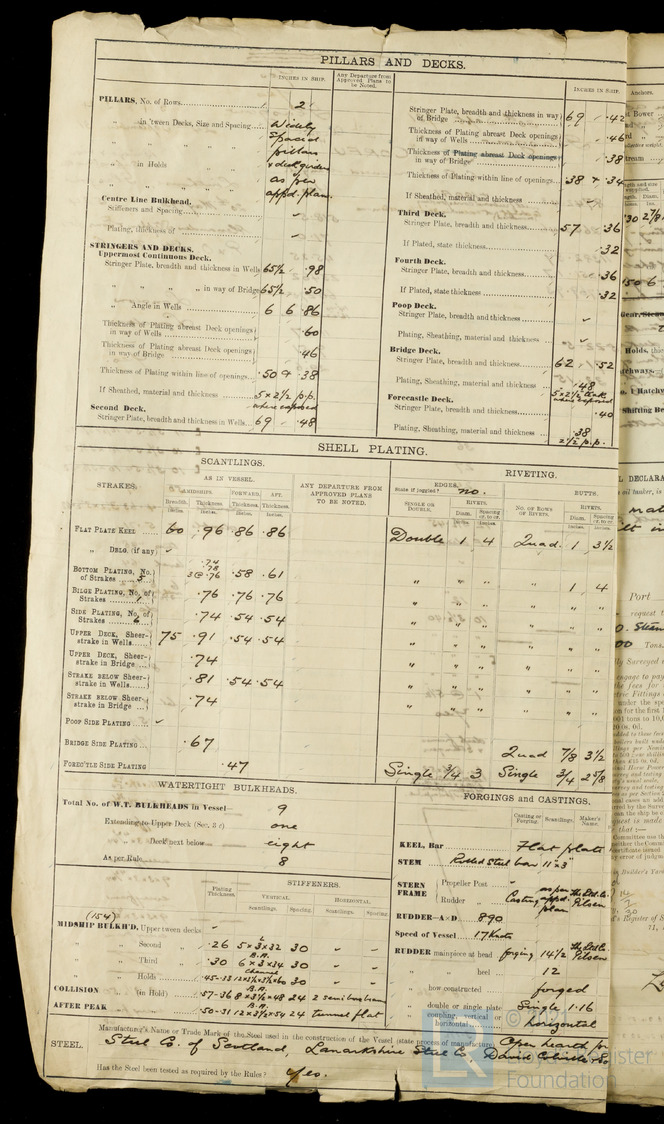 PILLARS AND DECKS.
INCHES IN SHIP.
Any Departure from Approved Plans to be Noted.
PILLARS, No. of Rows 2
„ in 'tween Decks, Size and Spacing Widely
„ „ spaced
„ „ pillars
„ in Holds & deck girders
„ „ as per
„ „ appd. plan.
Centre Line Bulkhead.
Stiffeners and Spacing
Plating, thickness of
STRINGERS AND DECKS.
Uppermost Continuous Deck.
Stringer Plate, breadth and thickness in Wells 65½ .98
„ „ „ „ in way of Bridge 65½ .50
„ Angle in Wells 6 6 .86
Thickness of Plating abreast Deck openings in way of Wells .60
Thickness of Plating abreast Deck openings in way of Bridge .46
Thickness of Plating within line of openings .50 & .38
If Sheathed, material and thickness 5 x 2½ p.p. where exposed
Second Deck.
Stringer Plate, breadth and thickness in Wells 69 .48
INCHES IN SHIP.
Stringer Plate, breadth and thickness in way of Bridge 69 .42
Thickness of Plating abreast Deck openings in way of Wells .46
Thickness of Plating abreast Deck openings in way of Bridge .38
Thickness of Plating within line of openings .38 & .34
If Sheathed, material and thickness
Third Deck.
Stringer Plate, breadth and thickness 57 .36
If Plated, state thickness .32
Fourth Deck.
Stringer Plate, breadth and thickness .36
If Plated, state thickness .32
Poop Deck.
Stringer Plate, breadth and thickness
Plating, Sheathing, material and thickness
Bridge Deck.
Stringer Plate, breadth and thickness 62 .52
Plating, Sheathing, material and thickness .48
5 x 2½ teak where exposed
Forecastle Deck.
Stringer Plate, breadth and thickness .40
Plating, Sheathing, material and thickness .38
2½ p.p.
SHELL PLATING.
SCANTLINGS.
RIVETING.
STRAKES.
AS IN VESSEL.
AMIDSHIPS. FORWARD. AFT.
Breadth. Thickness Thickness. Thickness.
Inches. Inches. Inches. Inches.
ANY DEPARTURE FROM APPROVED PLANS TO BE NOTED.
EDGES.
State if joggled? no.
BUTTS.
SINGLE OR DOUBLE.
RIVETS.
Diam. Spacing cr. to cr.
NO. OF ROWS OF RIVETS.
RIVETS.
Diam. Spacing cr. to cr.
FLAT PLATE KEEL 60 .96 .86 .86 Double 1 4 Quad. 1 3½
„ DBLG. (if any)
BOTTOM PLATING, No. of Strakes 5 .74 .78 3@.76 .58 .61 „ „ „ „ 1 4
BILGE PLATING, No. of Strakes 1 .76 .76 .76 „ „ „ „ „ „
SIDE PLATING, No. of Strakes 6 .74 .54 .54 „ „ „ „ „ „
UPPER DECK, Sheerstrake in Wells 75 .91 .54 .54 „ „ „ „ „ „
UPPER DECK, Sheerstrake in Bridge .74 „ „ „ „ „ „
STRAKE BELOW Sheerstrake in Wells .81 .54 .54 „ „ „ „ „ „
STRAKE BELOW Sheerstrake in Bridge .74 „ „ „ „ „ „
POOP SIDE PLATING
BRIDGE SIDE PLATING .67 Quad 7/8 3½
FOREC'TLE SIDE PLATING .47 Single 3/4 3 Single 3/4 2 5/8
WATERTIGHT BULKHEADS.
Total No. of W.T. BULKHEADS in Vessel 9
Extending to Upper Deck (Sec. 3 c) one
„ Deck next below eight
As per Rule 8
Plating Thickness.
STIFFENERS.
VERTICAL. HORIZONTAL.
Scantlings. Spacing. Scantlings. Spacing.
(154)
MIDSHIP BULKH'D, Upper tween decks
„ „ Second „ .26 5 x 3 x 32 30
„ „ Third „ B.A. .30 6 x 3 x 34 30
„ „ Holds channel 30
COLLISION „ (in Hold) B.A. .57-36 8 x 3½ x 48 24 2 semi box beams
AFTER PEAK „ B.A. .50-31 12 x 3½ x 54 24 tunnel flat
FORGINGS and CASTINGS.
Casting or Forging. Scantlings. Maker's Name.
KEEL, Bar Flat plate
STEM Rolled steel bar 11" x 3"
STERN FRAME
Propeller Post
Rudder „
Casting as per appd. plan Pilsen
RUDDER—A×D 890
Speed of Vessel 17 Knots
RUDDER mainpiece at head forging 14½ Pilsen
„ „ heel 12
„ how constructed forged
„ double or single plate Single 1.16
„ coupling, vertical or horizontal horizontal
STEEL.
Manufacturer's Name or Trade Mark of the Steel used in the construction of the Vessel (state process of manufacture) Open hearth pr
Steel Co. of Scotland, Lanarkshire Steel Co, David Colville & So
Has the Steel been tested as required by the Rules? Yes.
© 2021
Lloyd's Register
Foundation